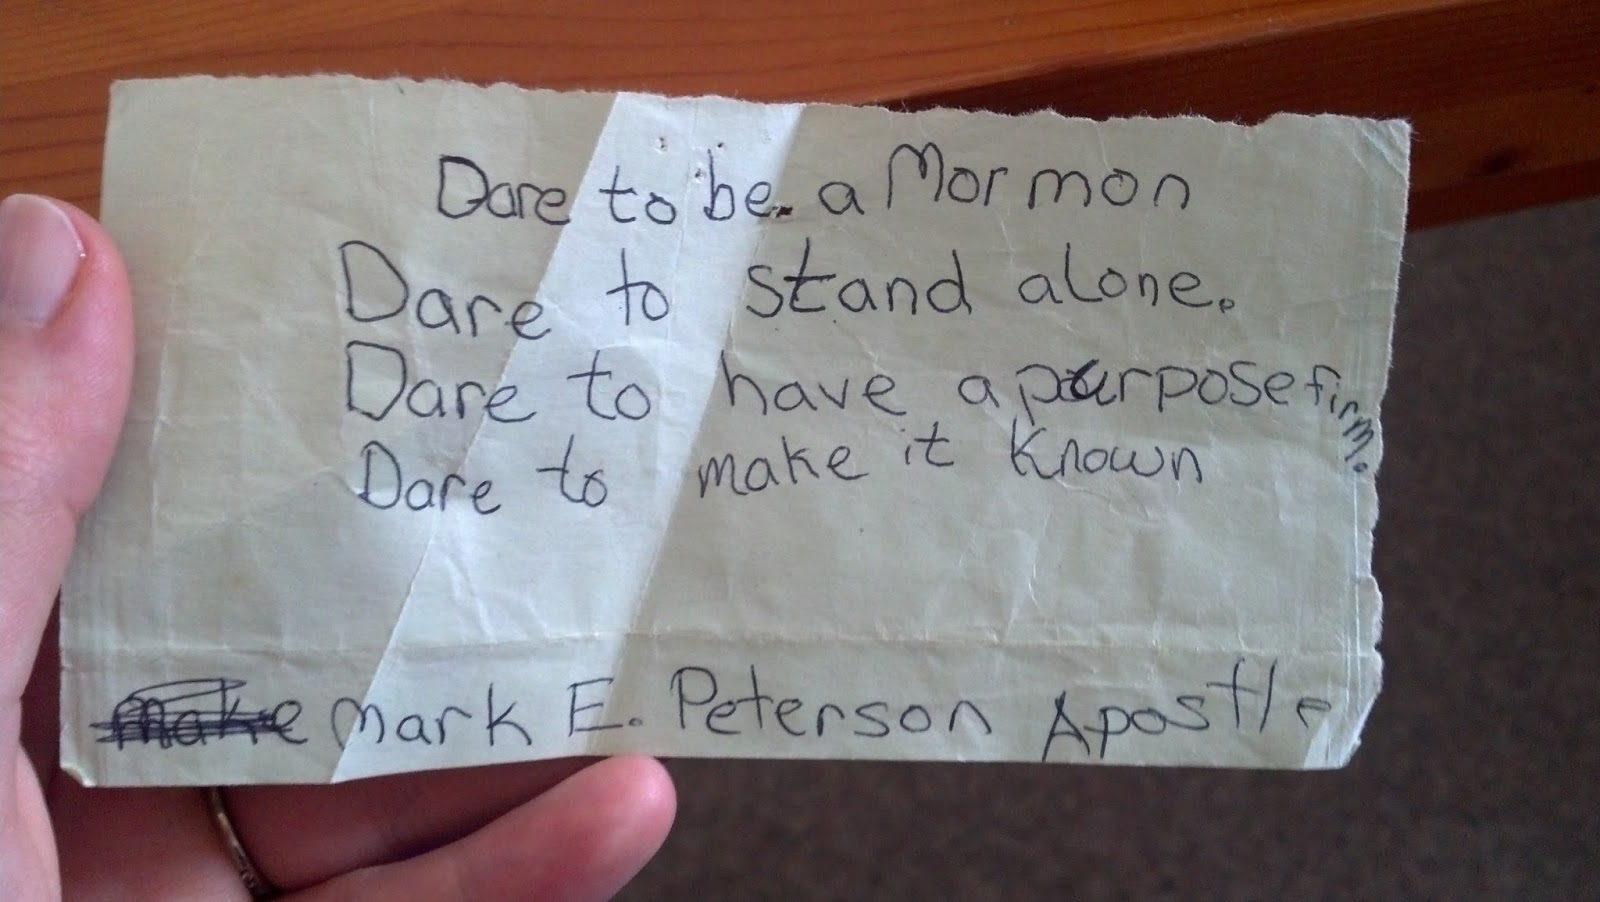 Dare to be a Mormon
Dare to stand alone.
Dare to have a purpose firm.
Dare to make it known
make Mark E. Peterson Apostle